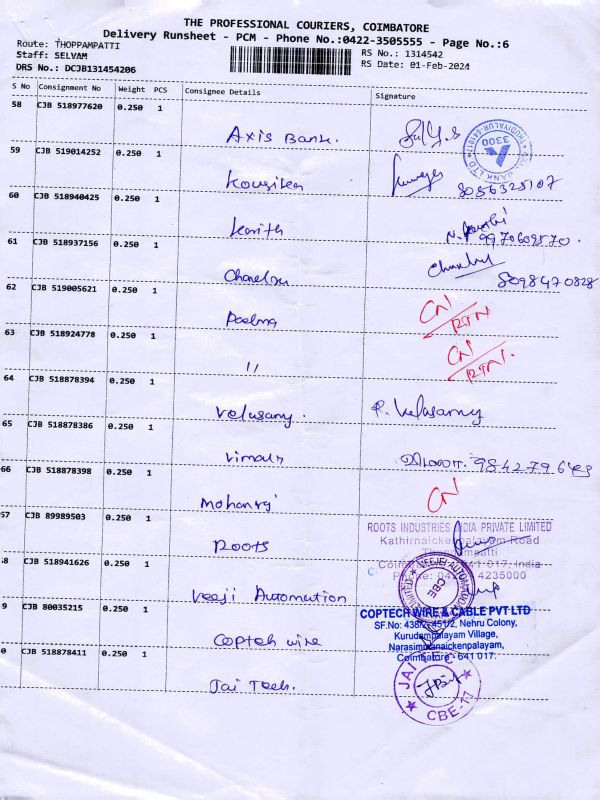 THE PROFESSIONAL COURIERS, COIMBATORE
Delivery Runsheet - PCM - Phone No.:0422-3505555 - Page No.:6
Route: THOPPAMPATTI RS No.: 1314542
Staff: SELVAM RS Date: 01-Feb-2024
DRS No.: DCJB131454206
S No Consignment No Weight PCS Consignee Details Signature
58 CJB 518977620 0.250 1
Axis Bank. 3300
59 CJB 519014252 0.250 1
Kousika 8056325107
60 CJB 518940425 0.250 1
9970609570
61 CJB 518937156 0.250 1
8098470828
62 CJB 519005621 0.250 1
CN
Padma RTN
63 CJB 518924778 0.250 1
CN
11 RTN.
64 CJB 518878394 0.250 1
Velusamy. P. Velusamy
65 CJB 518878386 0.250 1
Vimala
66 CJB 518878398 0.250 1
Mohanraj CN
67 CJB 89989503 0.250 1
ROOTS INDUSTRIES INDIA PRIVATE LIMITED
Kathirnaickenpalayam Road
Roots Thoppampatti
68 CJB 518941626 0.250 1
Coimbatore - 641 017, India
Phone: 0422 4235000
Veeji Automation VEEJEI AUTOMATION CBE
9 CJB 80035215 0.250 1
COPTECH WIRE & CABLE PVT LTD
SF.No: 438/2, 451/2, Nehru Colony,
Coptech wire Kurudampalayam Village,
Narasimhanaickenpalayam,
0 CJB 518878411 0.250 1
Coimbatore - 641 017.
Jai Tech. JAI TEC
CBE-17